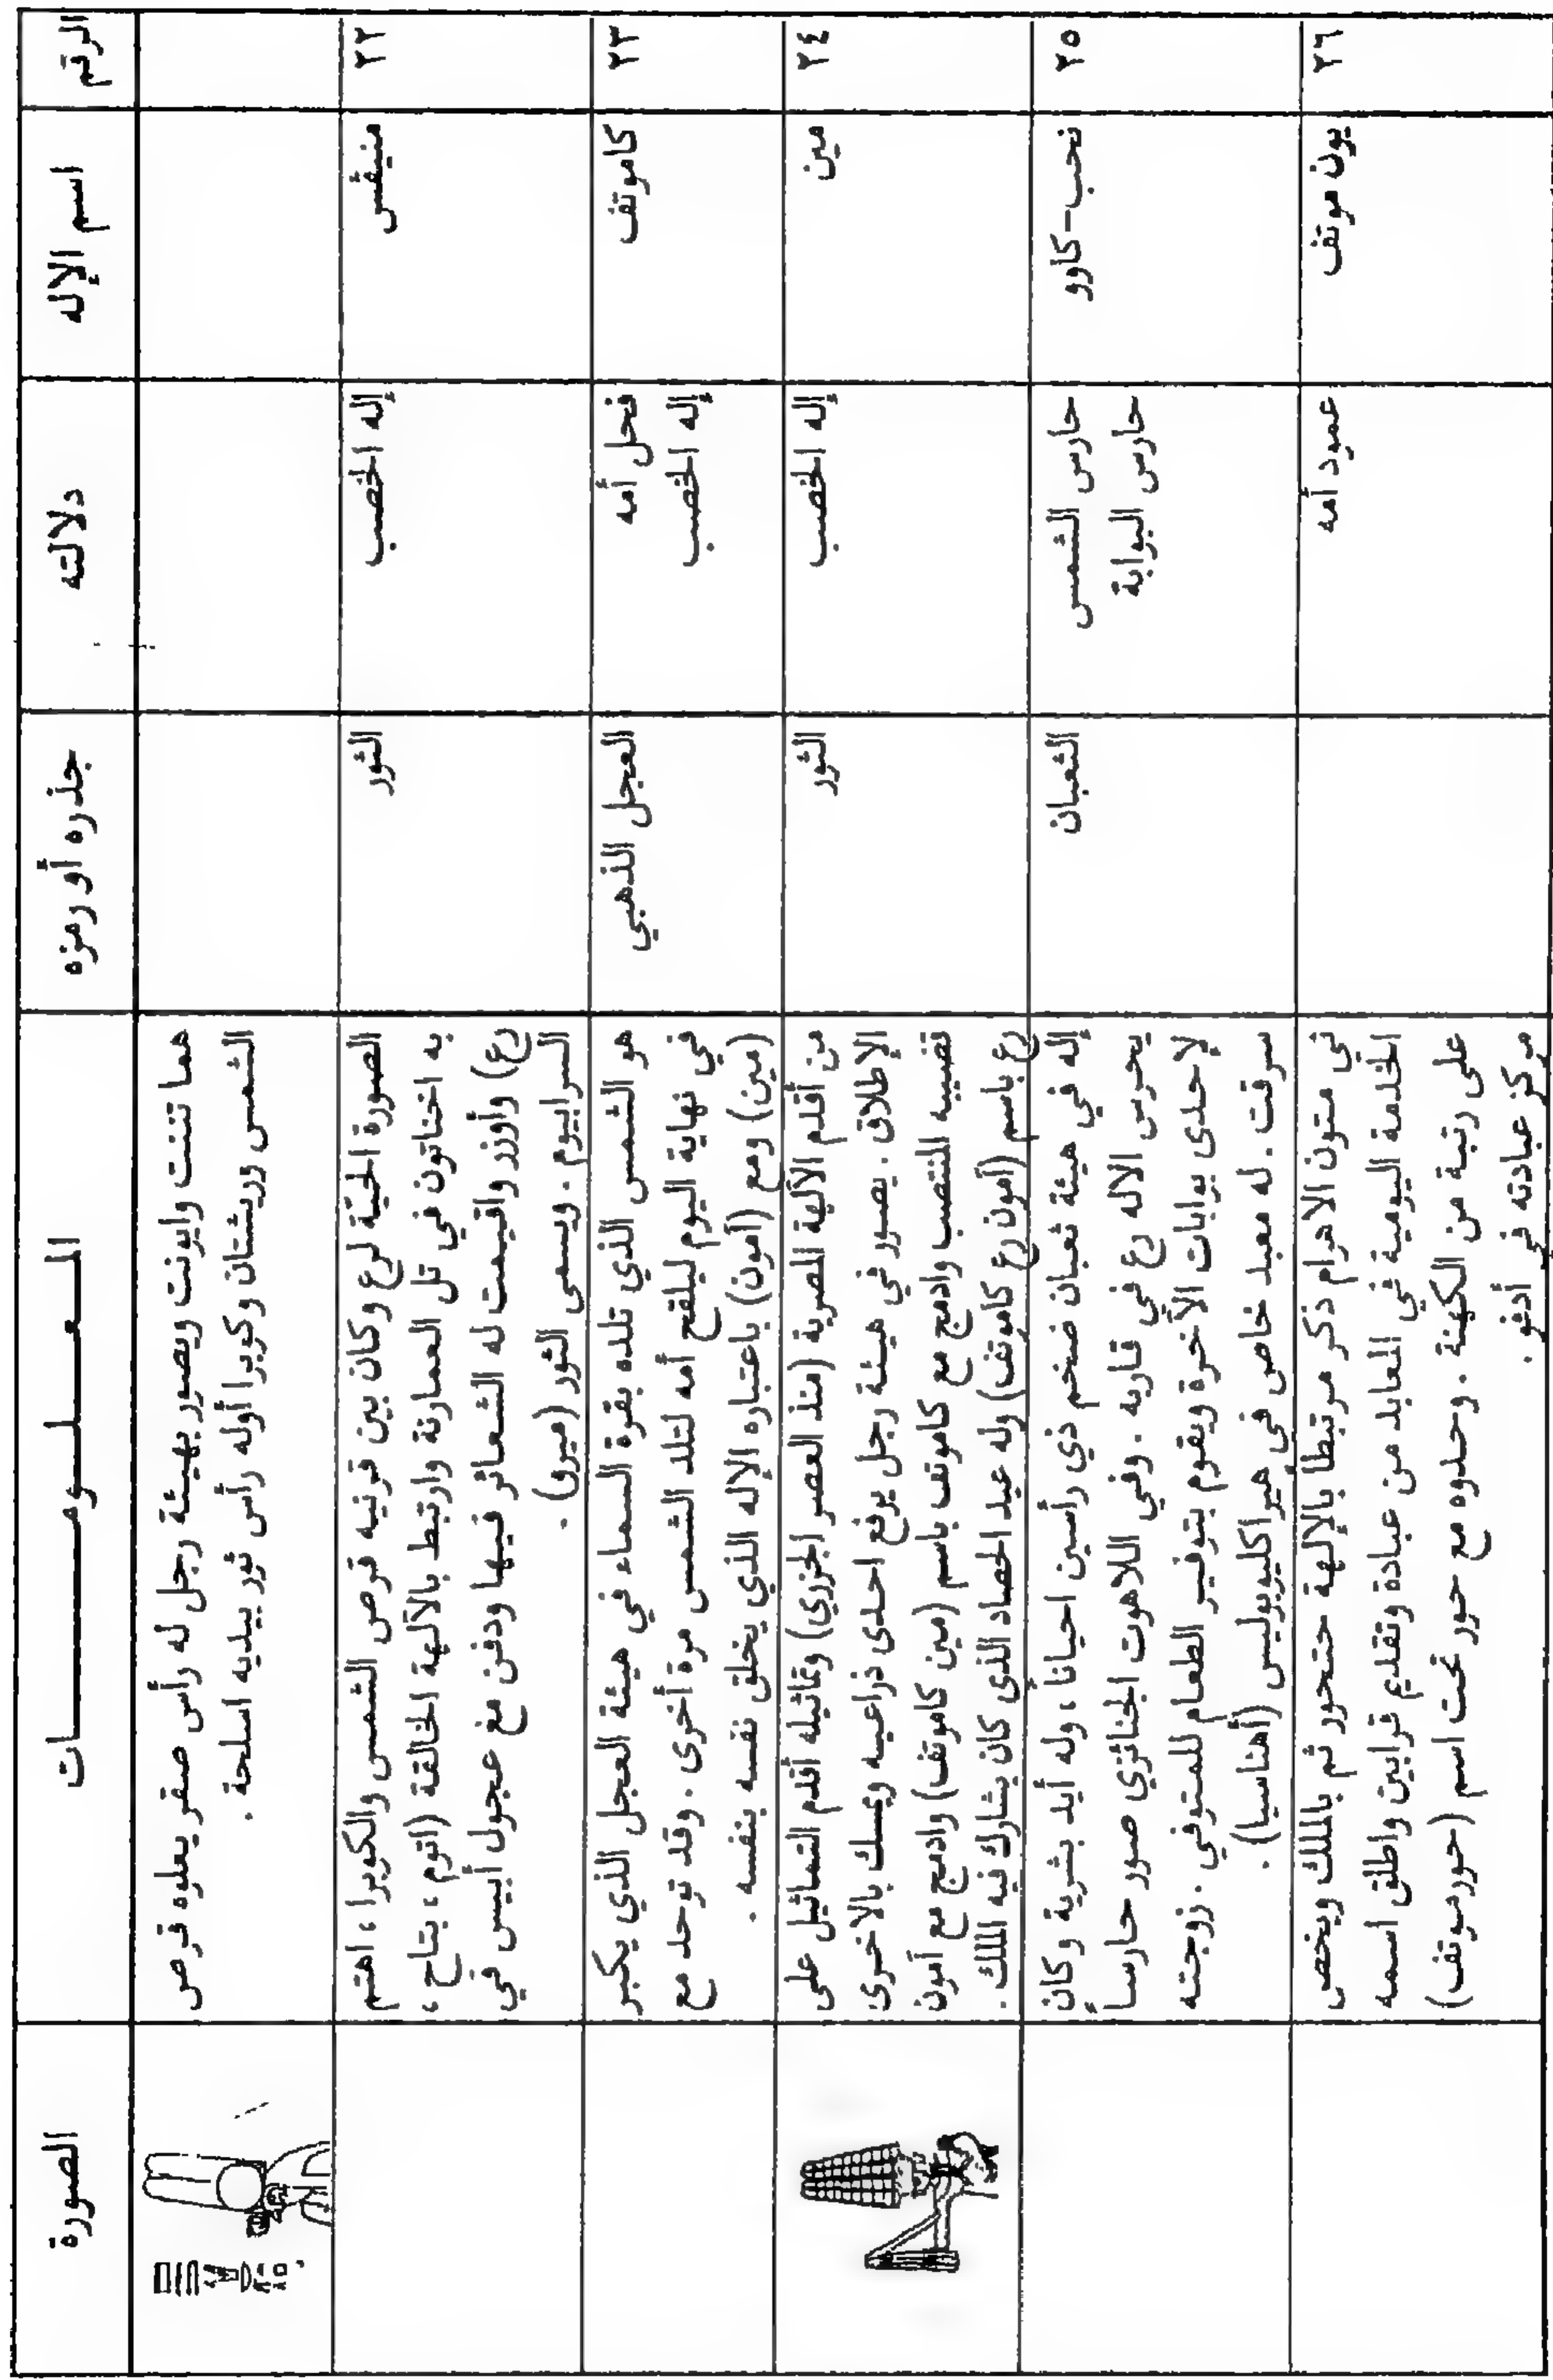 الرقم
اسم الإله
دلالته
جذره أو رمزه
المعـــلـــومـــــــات
الصورة
هما تننت وايونت ويصور بهيئة رجل له رأس صقر يعلوه قرص
الشمس وريشتان وكوبرا أوله رأس ثور بيديه اسلحة .
٢٢
منيفس
إله الخصب
الثور
الصورة الحيّة لرع وكان بين قرنيه قرص الشمس والكوبرا ، اهتم
به اختاتون في تل العمارنة وارتبط بالآلهة الخالقة (اتوم ، بتاح ،
رع) وأوزر واقيمت له الشعائر فيها ودفن مع عجول أبيس في
السرابيوم . ويسمى الثور (ميرق) .
٢٣
كاموتف
فحل أمه
إله الخصب
العجل الذهبي
هو الشمس الذي تلده بقرة السماء في هيئة العجل الذي يكبر
في نهاية اليوم ليلقح أمه لتلد الشمس مرة أخرى . وقد توحد مع
(مين) ومع (آمون) باعتباره الإله الذي يخلق نفسه بنفسه .
٢٤
مين
إله الخصب
الثور
من أقدم الآلهة المصرية (منذ العصر الجزري) وتماثيله أقدم التماثيل على
الإطلاق . يصور في هيئة رجل يرفع احدى ذراعيه ويمسك بالاخرى
قضيبه المنتصب وادمج مع كاموتف باسم (مين كاموتف) وادمج مع آمون
رع باسم (آمون رع كاموتف) وله عيد الحصاد الذي كان يشارك فيه الملك .
٢٥
نحب-كاوو
حارس الشمس
حارس البوابة
الثعبان
إله في هيئة ثعبان ضخم ذي رأسين احياناً ، وله أيد بشرية وكان
يحرس الاله رع في قاربه . وفي اللاهوت الجنائزي صور حارساً
لإحدى بوابات الآخرة ويقوم بتوفير الطعام للمتوفي . زوجته
سرقت . له معبد خاص في هيراكليوبوليس (أهناسيا) .
٢٦
يون موتف
عمود أمه
ني متون الاهرام ذكر مرتبطا بالإلهة حتحور ثم بالملك ويخص
الخدمة اليومية في المعابد من عبادة وتقديم قرابين واطلق اسمه
على رتبة من الكهنة . وحدوه مع حور تحت اسم (حورموتف)
مركز عبادته في أدفو .